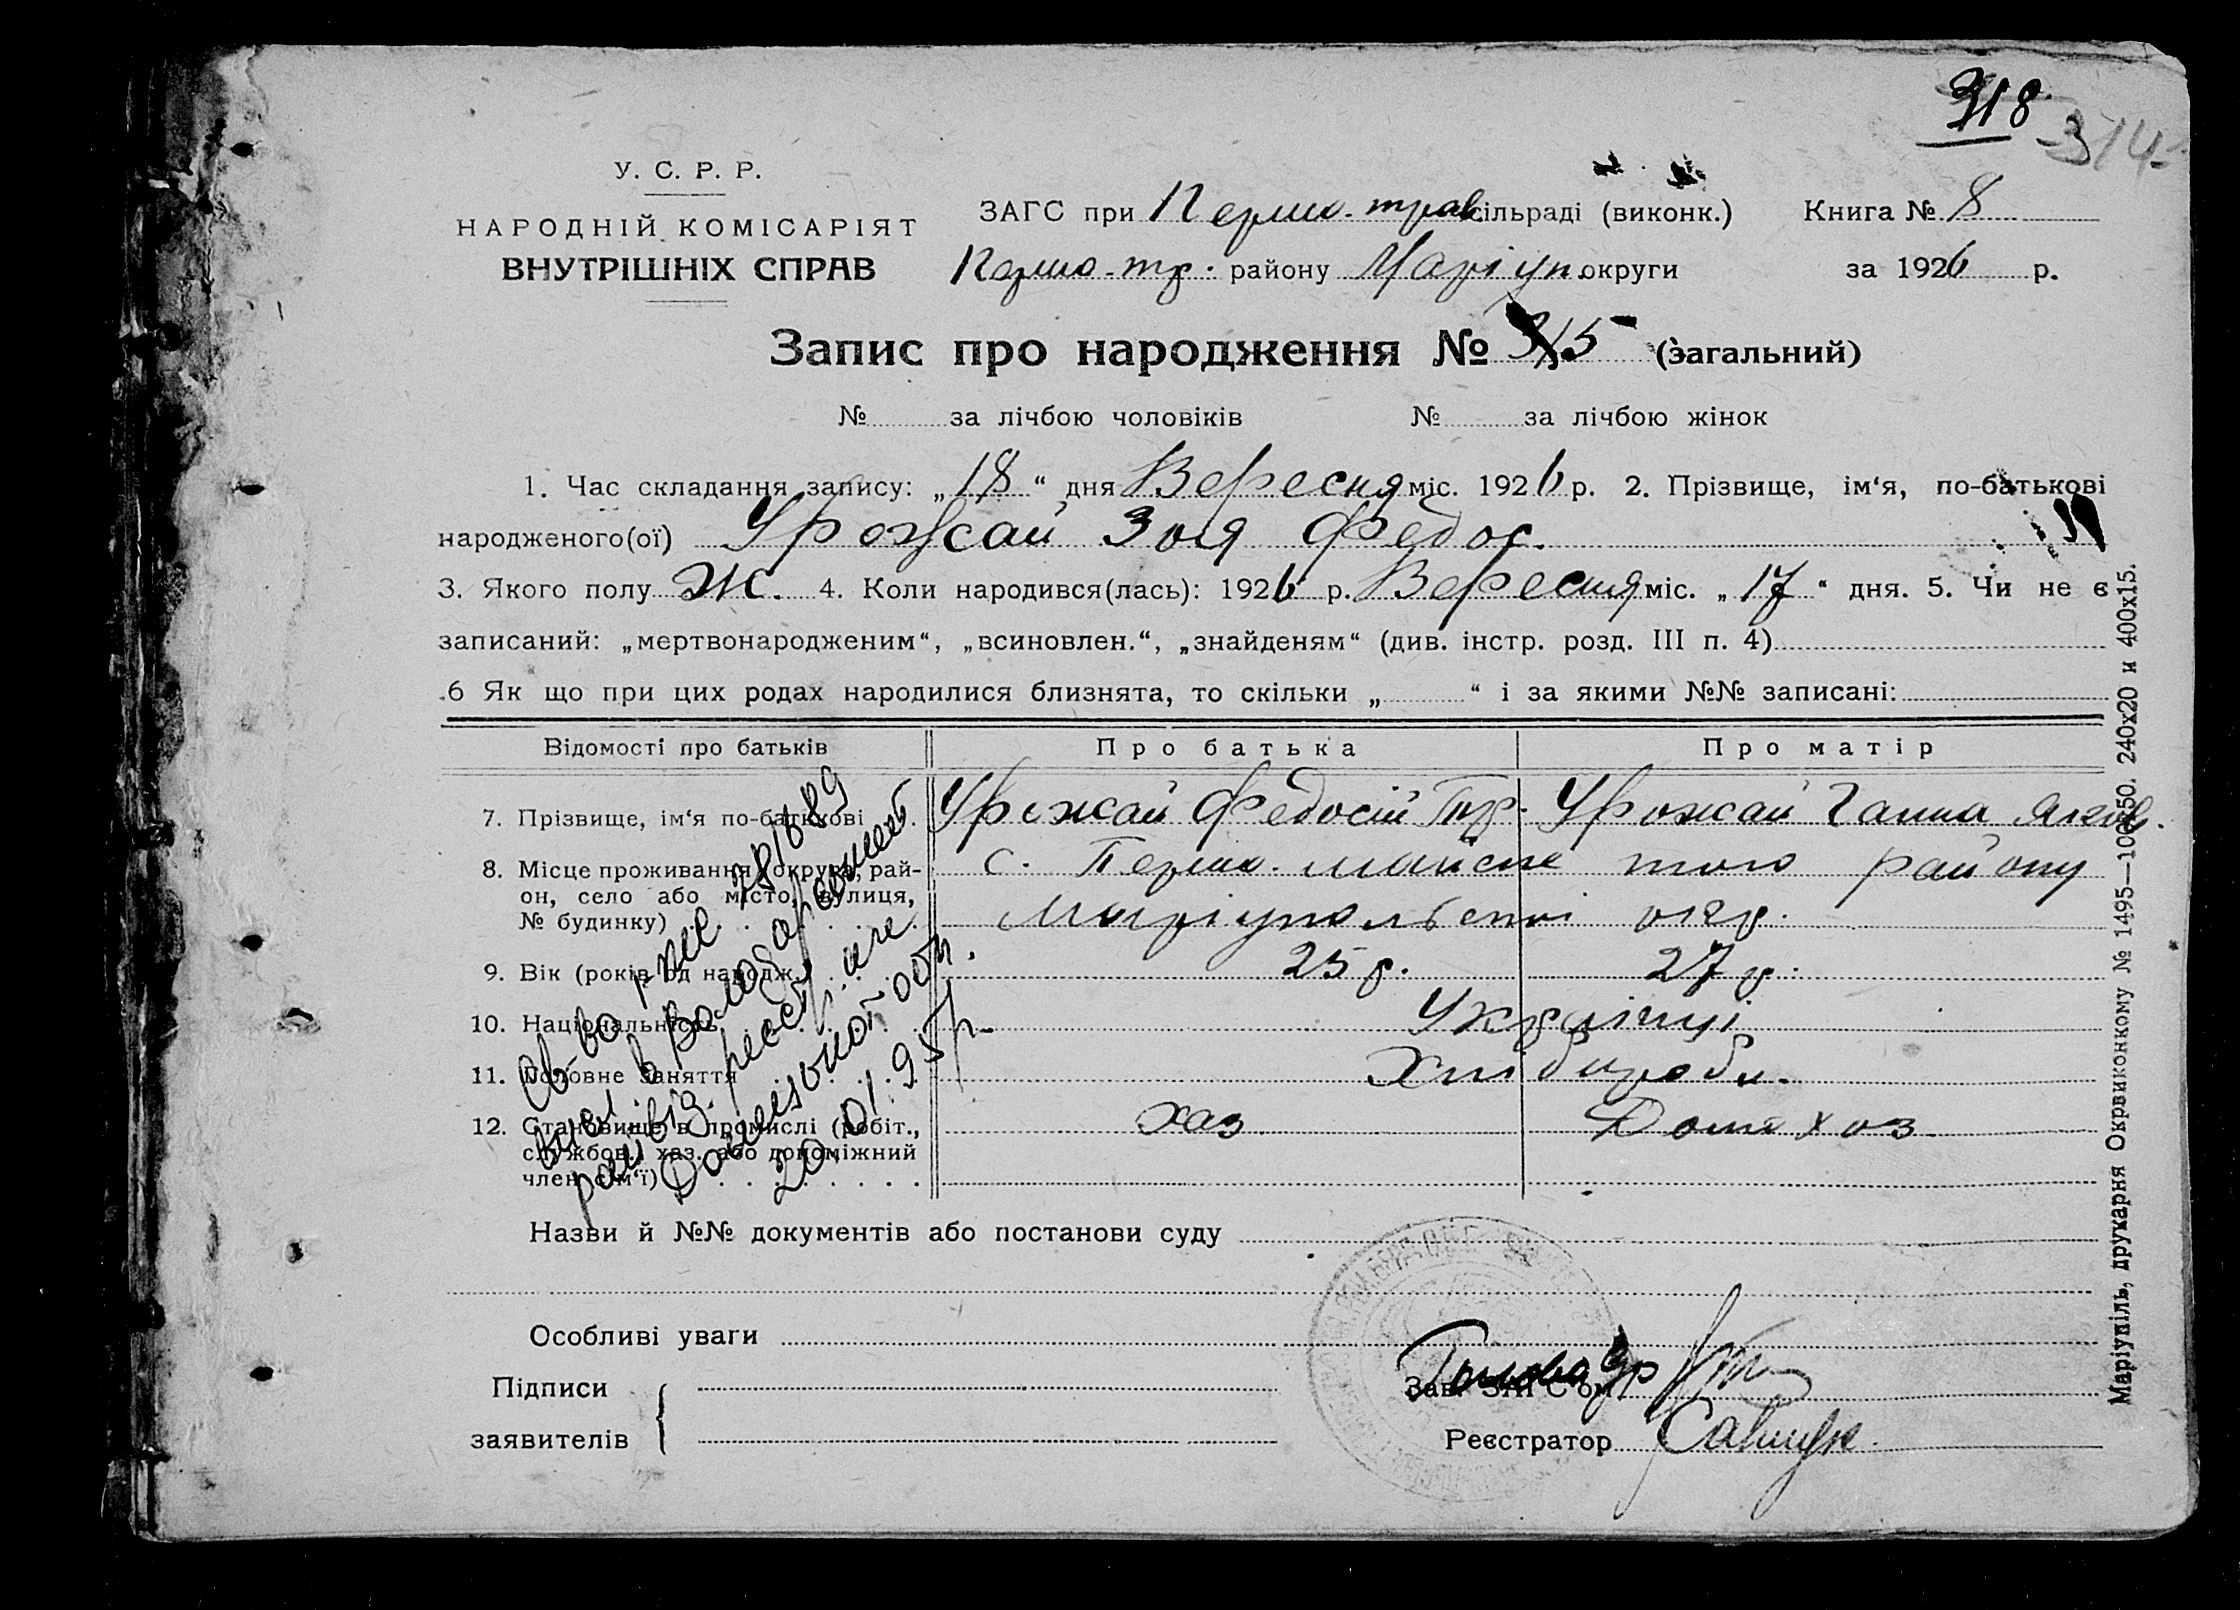 318
-314-
У. С. Р. Р.
НАРОДНІЙ КОМІСАРІЯТ
ВНУТРІШНІХ СПРАВ
ЗАГС при Першо-трав. сільраді (виконк.) Книга № 8
Першо-тр. району Маріуп. округи за 1926 р.
Запис про народження № 315 (загальний)
№ за лічбою чоловіків № за лічбою жінок
1. Час складання запису: „18“ дня Вересня міс. 1926 р. 2. Прізвище, ім‘я, по-батькові
народженого(ої) Урожай Зоя Федос.
3. Якого полу Ж. 4. Коли народився(лась): 1926 р. Вересня міс. „17“ дня. 5. Чи не є
записаний: „мертвонародженим“, „всиновлен.“, „знайденям“ (див. інстр. розд. III п. 4)
6 Як що при цих родах народилися близнята, то скільки „ “ і за якими №№ записані:
Відомості про батьків Про батька Про матір
7. Прізвище, ім‘я по-батькові Урожай Федосій Урожай Ганна Яков.
8. Місце проживання (округа, рай-
он, село або місто, вулиця,
№ будинку)
с. Першо-майськ того району
Маріупольської окр.
9. Вік (років од народж.) 25 р. 27 р.
10. Національність Українці
11. Головне заняття Хлібороби.
12. Становище в промислі (робіт.,
службов., хаз. або допоміжний
член сім‘ї)
хаз Дом хоз
Св-во
20.01.95 р.
Назви й №№ документів або постанови суду
Особливі уваги
Підписи
заявителів
Зав. ЗАГС'ом
Голова
Реєстратор
Маріупіль, друкарня Окрвиконкому № 1495—10050. 240х20 и 400х15.